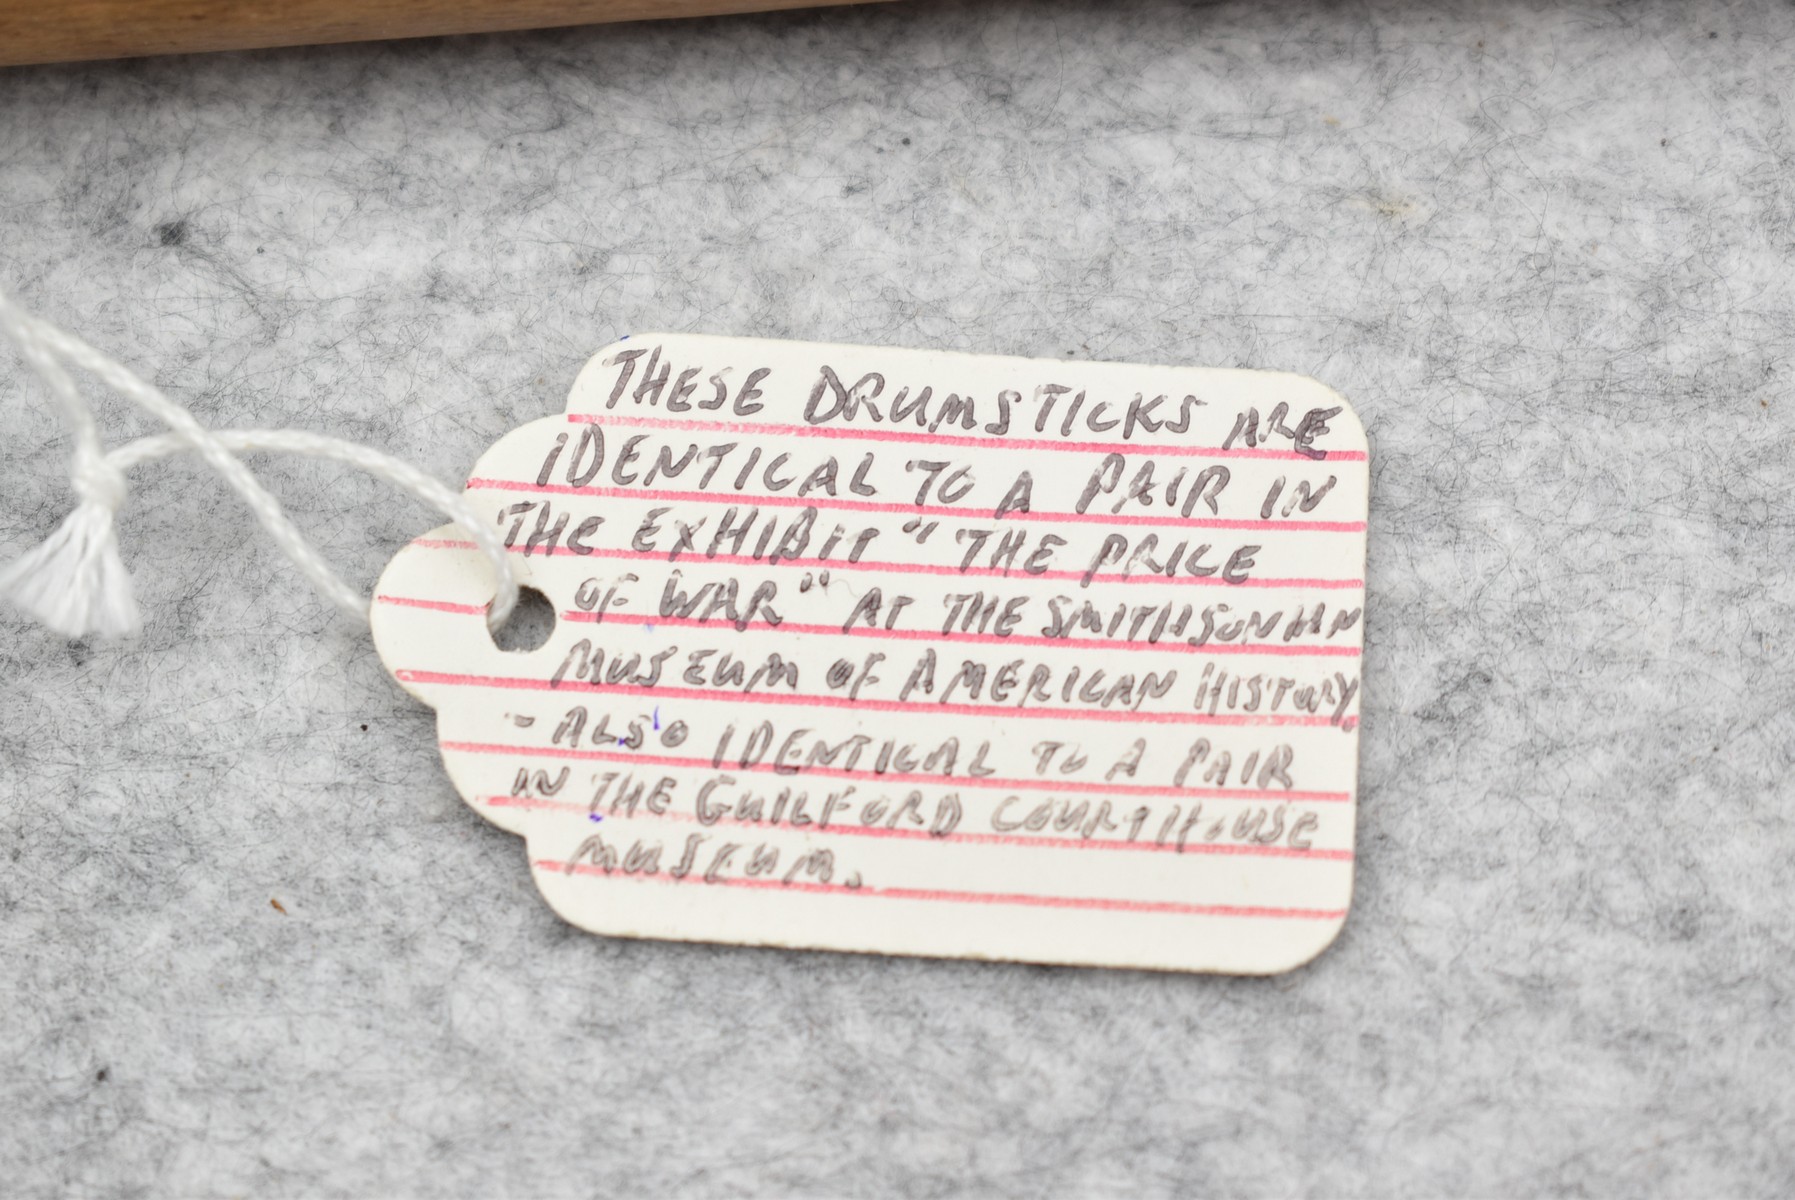 THESE DRUMSTICKS ARE
IDENTICAL TO A PAIR IN
THE EXHIBIT "THE PRICE
OF WAR" AT THE SMITHSONIAN
MUSEUM OF AMERICAN HISTORY
- ALSO IDENTICAL TO A PAIR
IN THE GUILFORD COURTHOUSE
MUSEUM.